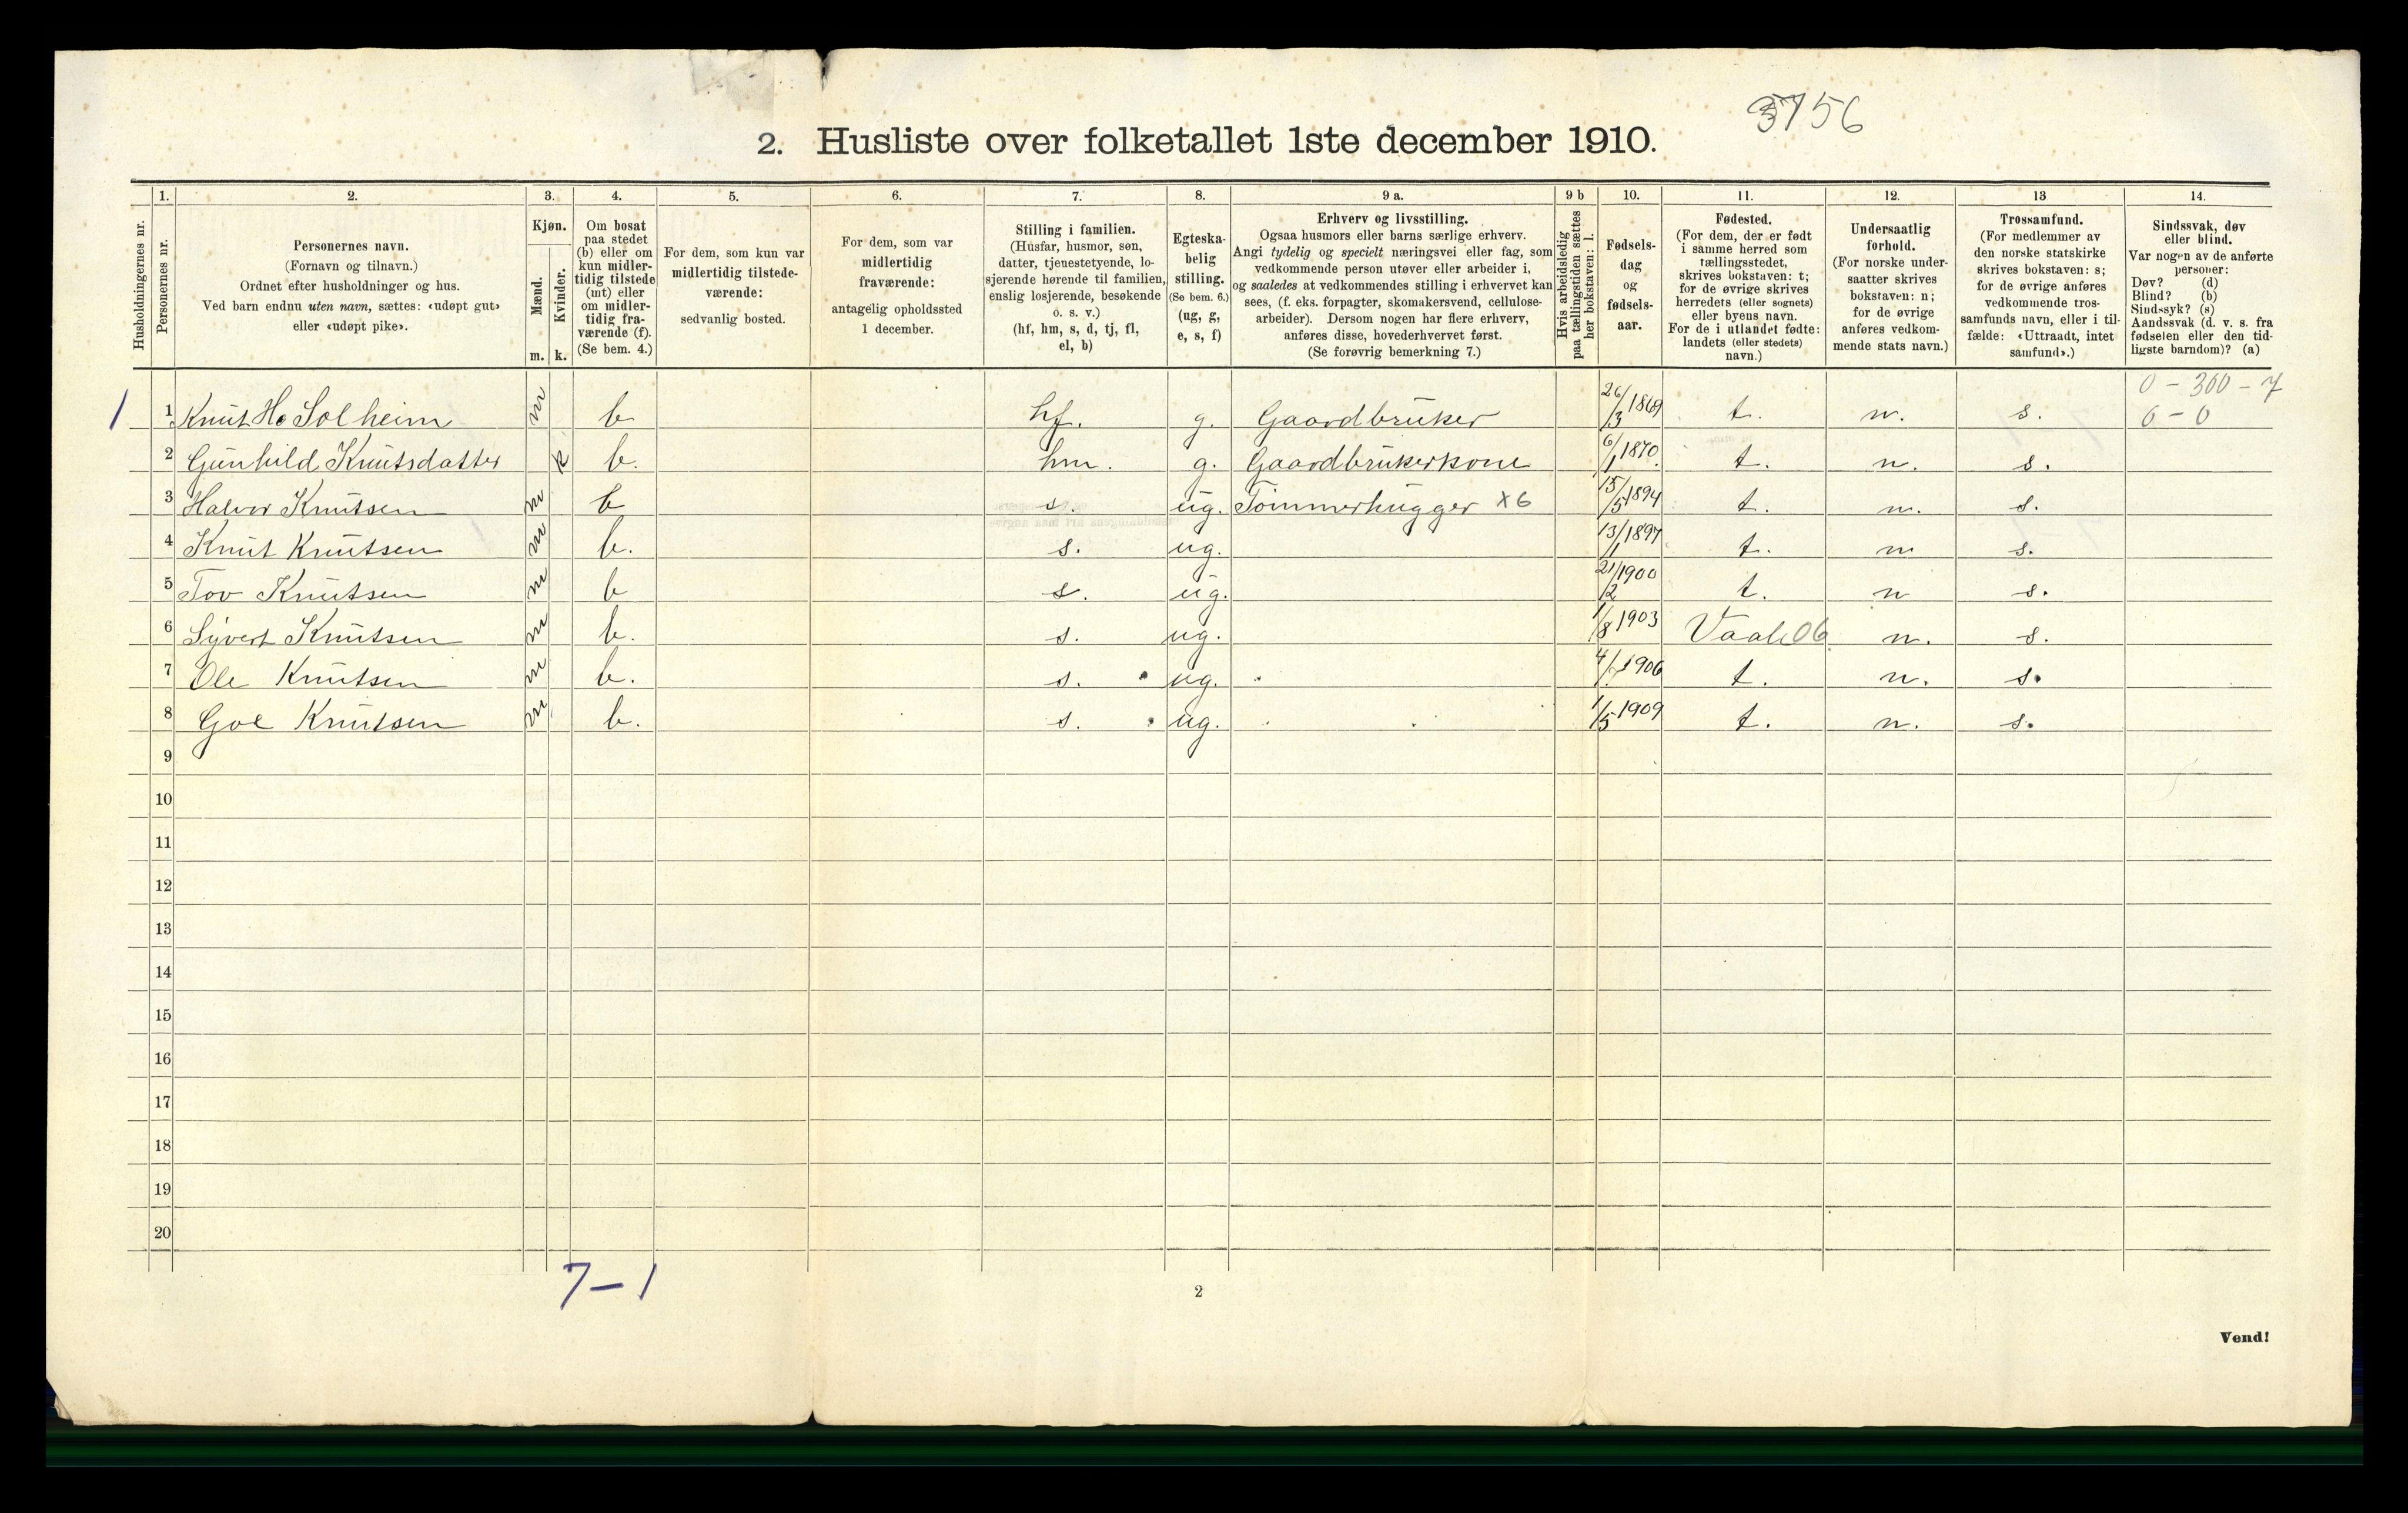 3756
2. Husliste over folketallet 1ste december 1910.
Husholdningernes nr.
1.
Personernes nr.
2.
Personernes navn.
(Fornavn og tilnavn.)
Ordnet efter husholdninger og hus.
Ved barn endnu uten navn, sættes: «udøpt gut»
eller «udøpt pike».
3.
Kjøn.
Mænd.
Kvinder.
m. k.
4.
Om bosat
paa stedet
(b) eller om
kun midler-
tidig tilstede
(mt) eller
om midler-
tidig fra-
værende (f).
(Se bem. 4.)
5.
For dem, som kun var
midlertidig tilstede-
værende:
sedvanlig bosted.
6.
For dem, som var
midlertidig
fraværende:
antagelig opholdssted
1 december.
7.
Stilling i familien.
(Husfar, husmor, søn,
datter, tjenestetyende, lo-
sjerende hørende til familien,
enslig losjerende, besøkende
o. s. v.)
(hf, hm, s, d, tj, fl,
el, b)
8.
Egteska-
belig
stilling.
(Se bem. 6.)
(ug, g,
e, s, f)
9 a.
Erhverv og livsstilling.
Ogsaa husmors eller barns særlige erhverv.
Angi tydelig og specielt næringsvei eller fag, som
vedkommende person utøver eller arbeider i,
og saaledes at vedkommendes stilling i erhvervet kan
sees, (f. eks. forpagter, skomakersvend, cellulose-
arbeider). Dersom nogen har flere erhverv,
anføres disse, hovederhvervet først.
(Se forøvrig bemerkning 7.)
9 b
Hvis arbeidsledig
paa tællingstiden sættes
her bokstaven: l.
10.
Fødsels-
dag
og
fødsels-
aar.
11.
Fødested.
(For dem, der er født
i samme herred som
tællingsstedet,
skrives bokstaven: t;
for de øvrige skrives
herredets (eller sognets)
eller byens navn.
For de i utlandet fødte:
landets (eller stedets)
navn.)
12.
Undersaatlig
forhold.
(For norske under-
saatter skrives
bokstaven: n;
for de øvrige
anføres vedkom-
mende stats navn.)
13
Trossamfund.
(For medlemmer av
den norske statskirke
skrives bokstaven: s;
for de øvrige anføres
vedkommende tros-
samfunds navn, eller i til-
fælde: «Uttraadt, intet
samfund».)
14.
Sindssvak, døv
eller blind.
Var nogen av de anførte
personer:
Døv? (d)
Blind? (b)
Sindssyk? (s)
Aandssvak (d. v. s. fra
fødselen eller den tid-
ligste barndom)? (a)
0 - 300 - 7
1 1 Knut H. Solheim m b hf. g. Gaardbruker 26/3 1869 t. n. s. 0 - 0
2 Gunhild Knutsdatter k b. hm. g. Gaardbrukerkone 6/1 1870. t. n. s.
3 Halvor Knutsen m b s. ug. Tømmerhugger x6 15/5 1894 t. n. s.
4 Knut Knutsen m b. s. ug. 13/1 1897 t. n s.
5 Tov Knutsen m b s. ug. 21/2 1900 t. n s.
6 Syvert Knutsen m b. s. ug. 1/8 1903 n. s.
7 Ole Knutsen m b. s. ug. 1906 t. n. s.
8 Goe Knutsen m b. s. ug. 1/5 1909 t. n. s.
9
10
11
12
13
14
15
16
17
18
19
20
7 - 1
2
Vend!